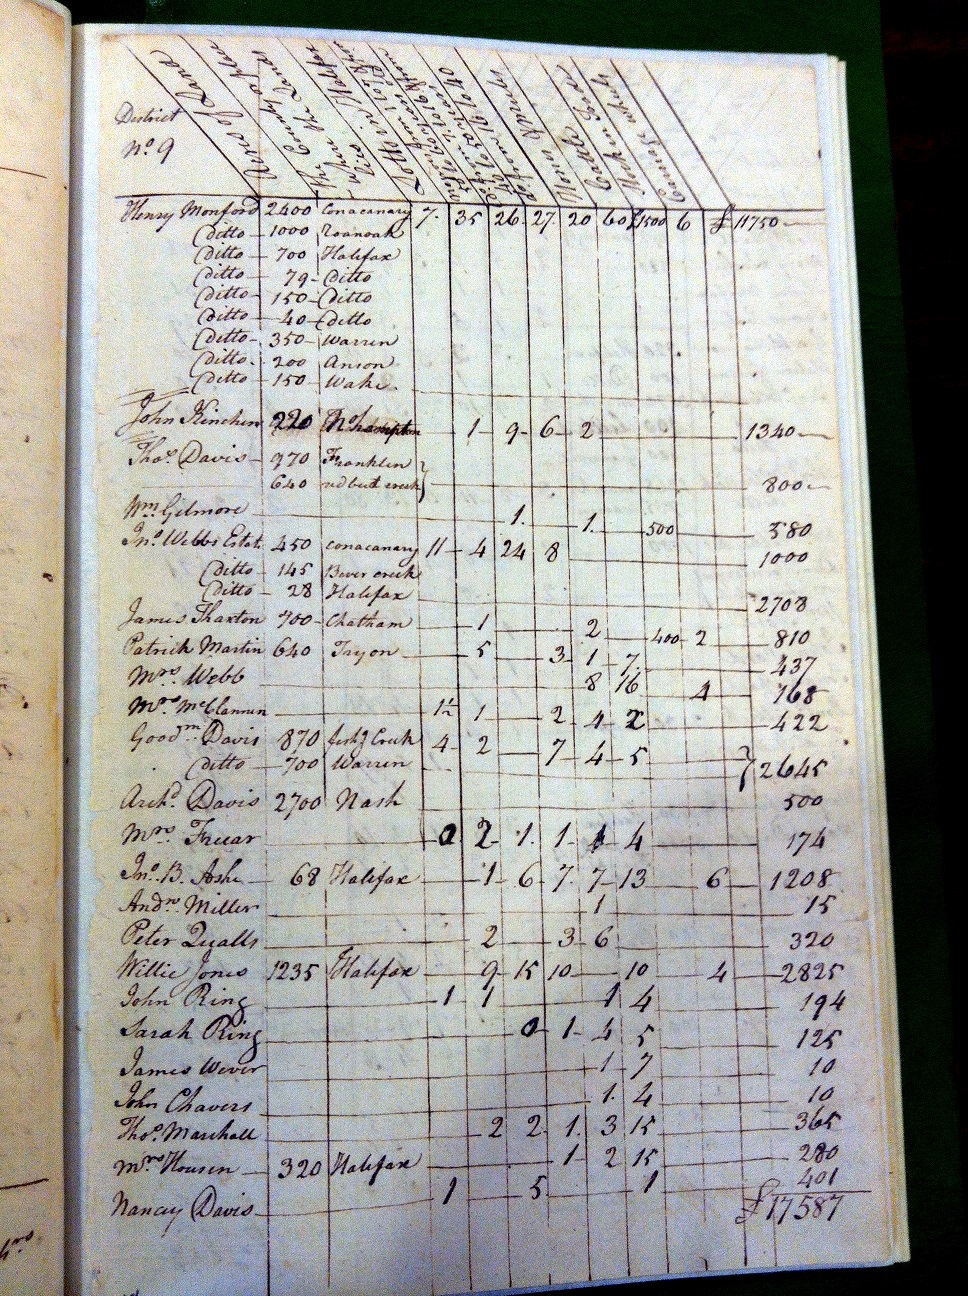 District
No. 9
Acres of Land
The County
where the Land
Lies
Lotts in Halifax
Cattle
Henry Monford 2400 Conacanary 7. 35 26. 27. 20 60 £1500 6 £ 11750
Ditto 1000 Roanoak
Ditto 700 Halifax
Ditto 79 Ditto
Ditto 150 Ditto
Ditto 40 Ditto
Ditto 350 Warren
Ditto 200 Anson
Ditto 150 Wake
John Kinchen 220 No.hampton 1 9 6 2 1340
Thos. Davis 970 Franklin
640 redbud creek 800
Wm. Gilmore 1. 1. 500 580
Jno. Webbs Estat. 450 Conacanary 11 4 24 8 1000
Ditto 145 Bever creek
Ditto 28 Halifax 2708
James Thaxton 700 Chatham 1 2 400 2 810
Patrick Martin 640 Tryon 5 3 1 7. 437
Mrs. Webb 8 16 4 768
Mrs. McClannen 1½ 1 2 4 2 422
Goodm. Davis 870 fishg Creek 4 2 7 4 5
Ditto 700 Warren 2645
Archd. Davis 2700 Nash 500
Mrs. Frear 0 2 1. 1 4 4 174
Jno. B. Ashe 68 Halifax 1 6 7. 7 13 6 1208
Andw. Miller 1 15
Peter Qualls 2 3 6 320
Willie Jones 1235 Halifax 9 15 10 10 4 2825
John Ring 1 1 1 4 194
Sarah Ring 0 1 4 5 125
James Wever 1 7 10
John Chavers 1. 4 10
Thos. Marshall 2 2 1. 3 15 365
Mrs. Housen 320 Halifax 1 2 15 280
Nancy Davis 1 5 1 401
£ 17587